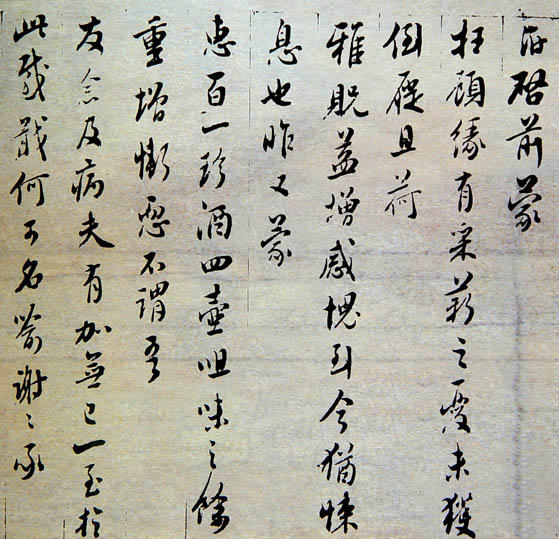 啓前蒙
枉顧緣有采薪之憂未獲
倒屣且荷
雅貺益增感愧到今猶悚
息也昨又蒙
惠百一珍酒四壺咀味之餘
重增慚恧不謂吾
友念及病夫有加無已一至於
此感戢何可名喻謝〻承